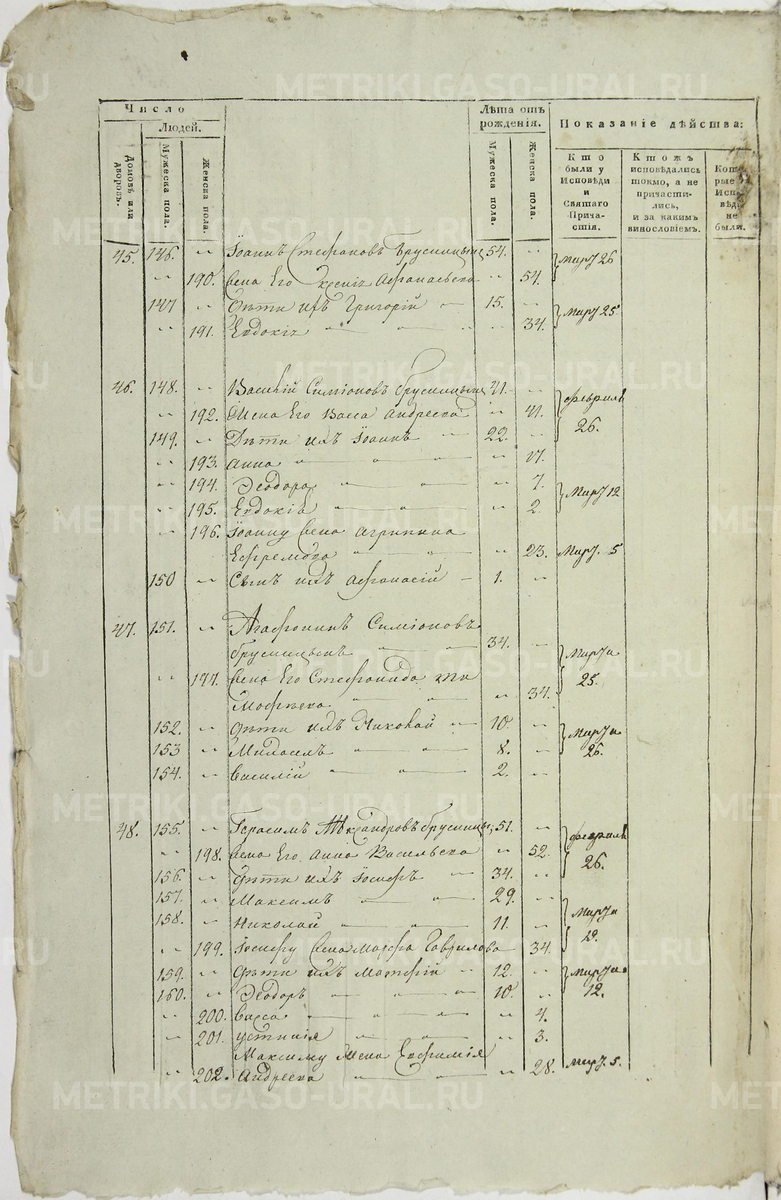 METRIKI.GASO-URAL.RU
Число
Людей.
Домовъ или дворовъ.
Мужеска пола.
Женска пола.
Лѣта отъ рождения.
Мужеска пола.
Женска пола.
Показаніе дѣйства:
Кто были у Исповѣди и Святаго Прича-стія.
Ктожъ исповѣдались токмо, а не причасти-лись, и за какимъ винословіемъ.
Кото рые Исп вѣд не были.
45. 146. Іоаннъ Стефановъ Брусницынъ 54. Март 26
190. Жена Его Аѳанасьева 54.
147 Дѣти ихъ Григорій 15. Март 25
191. Евдокія 34.
46. 148. Василій Симіоновъ Брусницынъ 41. февраля
192. Жена Его Васса Андреева 41. 26.
149. Дѣти ихъ Іоаннъ 22.
193. Анна 17.
194. Ѳеодора 7. Март 12
195. Евдокія 2.
196. Іоанну Жена Агрипина
Ефремова 23. Март. 5
150 Сынъ ихъ Афонасій 1.
47. 151. Агафоникъ Симіоновъ
Брусницынъ 34. Марта
197. Жена Его Стефанида 25.
34.
152. Дѣти ихъ Николай 10. Марта
153 8. 25.
154. Василій 2.
48. 155. Герасимъ Александровъ Брусницынъ 51. февраля
198. Жена Его Анна Васильева 52. 26.
156. Дѣти ихъ Іосифъ 34.
157. Максимъ 29. Марта
158. Николай 11. 12.
199. Іосифу Жена Марфа Гаврилова 34.
159. Дѣти ихъ Матфій 12. Марта
160. Ѳеодоръ 10. 12.
200. Васса 4.
201. Устинія 3.
Максиму Жена Евфимія
202. Андреева 28. Март. 5.